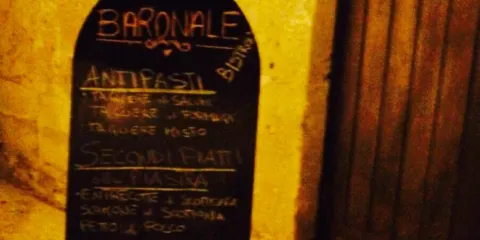 BARONALE
BISTROT
ANTIPASTI
TAGLIERE di SALUMI
TAGLIERE di FORMAGGI
TAGLIERE MISTO
SECONDI PIATTI
di SCOTTONA
di SCOTTONA
PETTO di POLLO